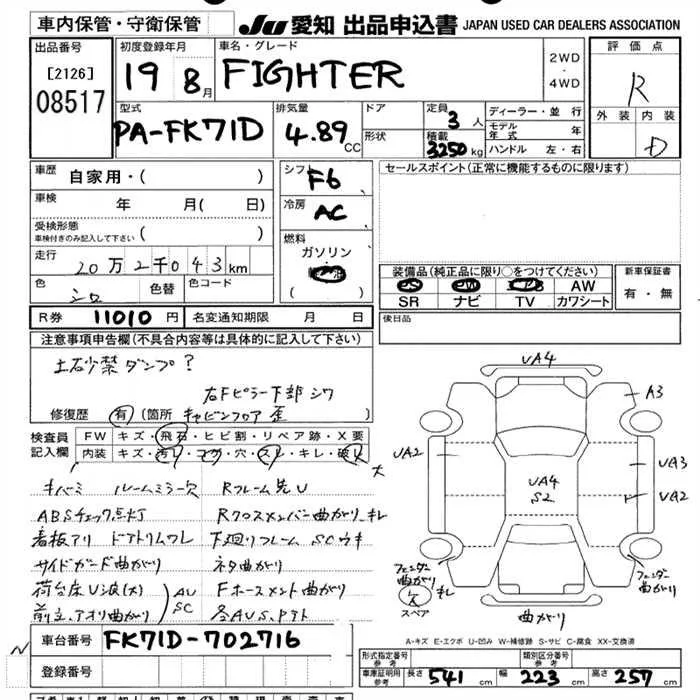 車内保管・守衛保管
JU 愛知 出品申込書 JAPAN USED CAR DEALERS ASSOCIATION
出品番号
[2126]
08517
初度登録年月
19 8月
車名・グレード
FIGHTER
2WD
・
4WD
評価点
R
外装 内装
D
型式
PA-FK71D
排気量
4.89 CC
ドア
形状
定員 3人
積載 3250 kg
ディーラー・並行
モデル年式 年
ハンドル 左・右
車歴 自家用・( )
車検 年 月( 日)
受検形態
車検付きのみ記入して下さい ( )
走行 20万2千043km
色 シロ
色替
色コード
シフト F6
冷房 AC
燃料
ガソリン
( )
セールスポイント(正常に機能するものに限ります)
装備品(純正品に限り○をつけてください)
PS PW AW
SR ナビ TV カワシート
新車保証書
有・無
R券 11010円 名変通知期限 月 日
後日品
注意事項申告欄(不具合内容等は具体的に記入して下さい)
土砂禁ダンプ?
右Fピラー下部シワ
修復歴 有 (箇所 キャビンフロア歪
検査員記入欄
FW キズ・飛石・ヒビ割・リペア跡・X要
内装 キズ・汚レ・コゲ・穴・スレ・キレ・破レ 大
キバミ ルームミラー欠 Rフレーム先U
ABSチェック点灯 Rクロスメンバー曲がり、キレ
看板アリ ドアトリムワレ 下廻りフレームSCウキ
サイドガード曲がり ネタ曲がり
荷台床U波(大) AU SC Fホースメント曲がり
前立、アオリ曲がり 各AUS、アテ
UA4
A3
UA2
UA3
UA4
S2
UA2
フェンダー曲がり キレ
欠
スペア
フェンダー曲がり
曲がり
A-キズ E-エクボ U-凹み W-補修跡 S-サビ C-腐食 XX-交換済
車台番号 FK71D-702716
登録番号
形式指定番号
参考
類別区分番号
参考
車庫証明用
参考
長さ 541 cm 幅 223 cm 高さ 257 cm